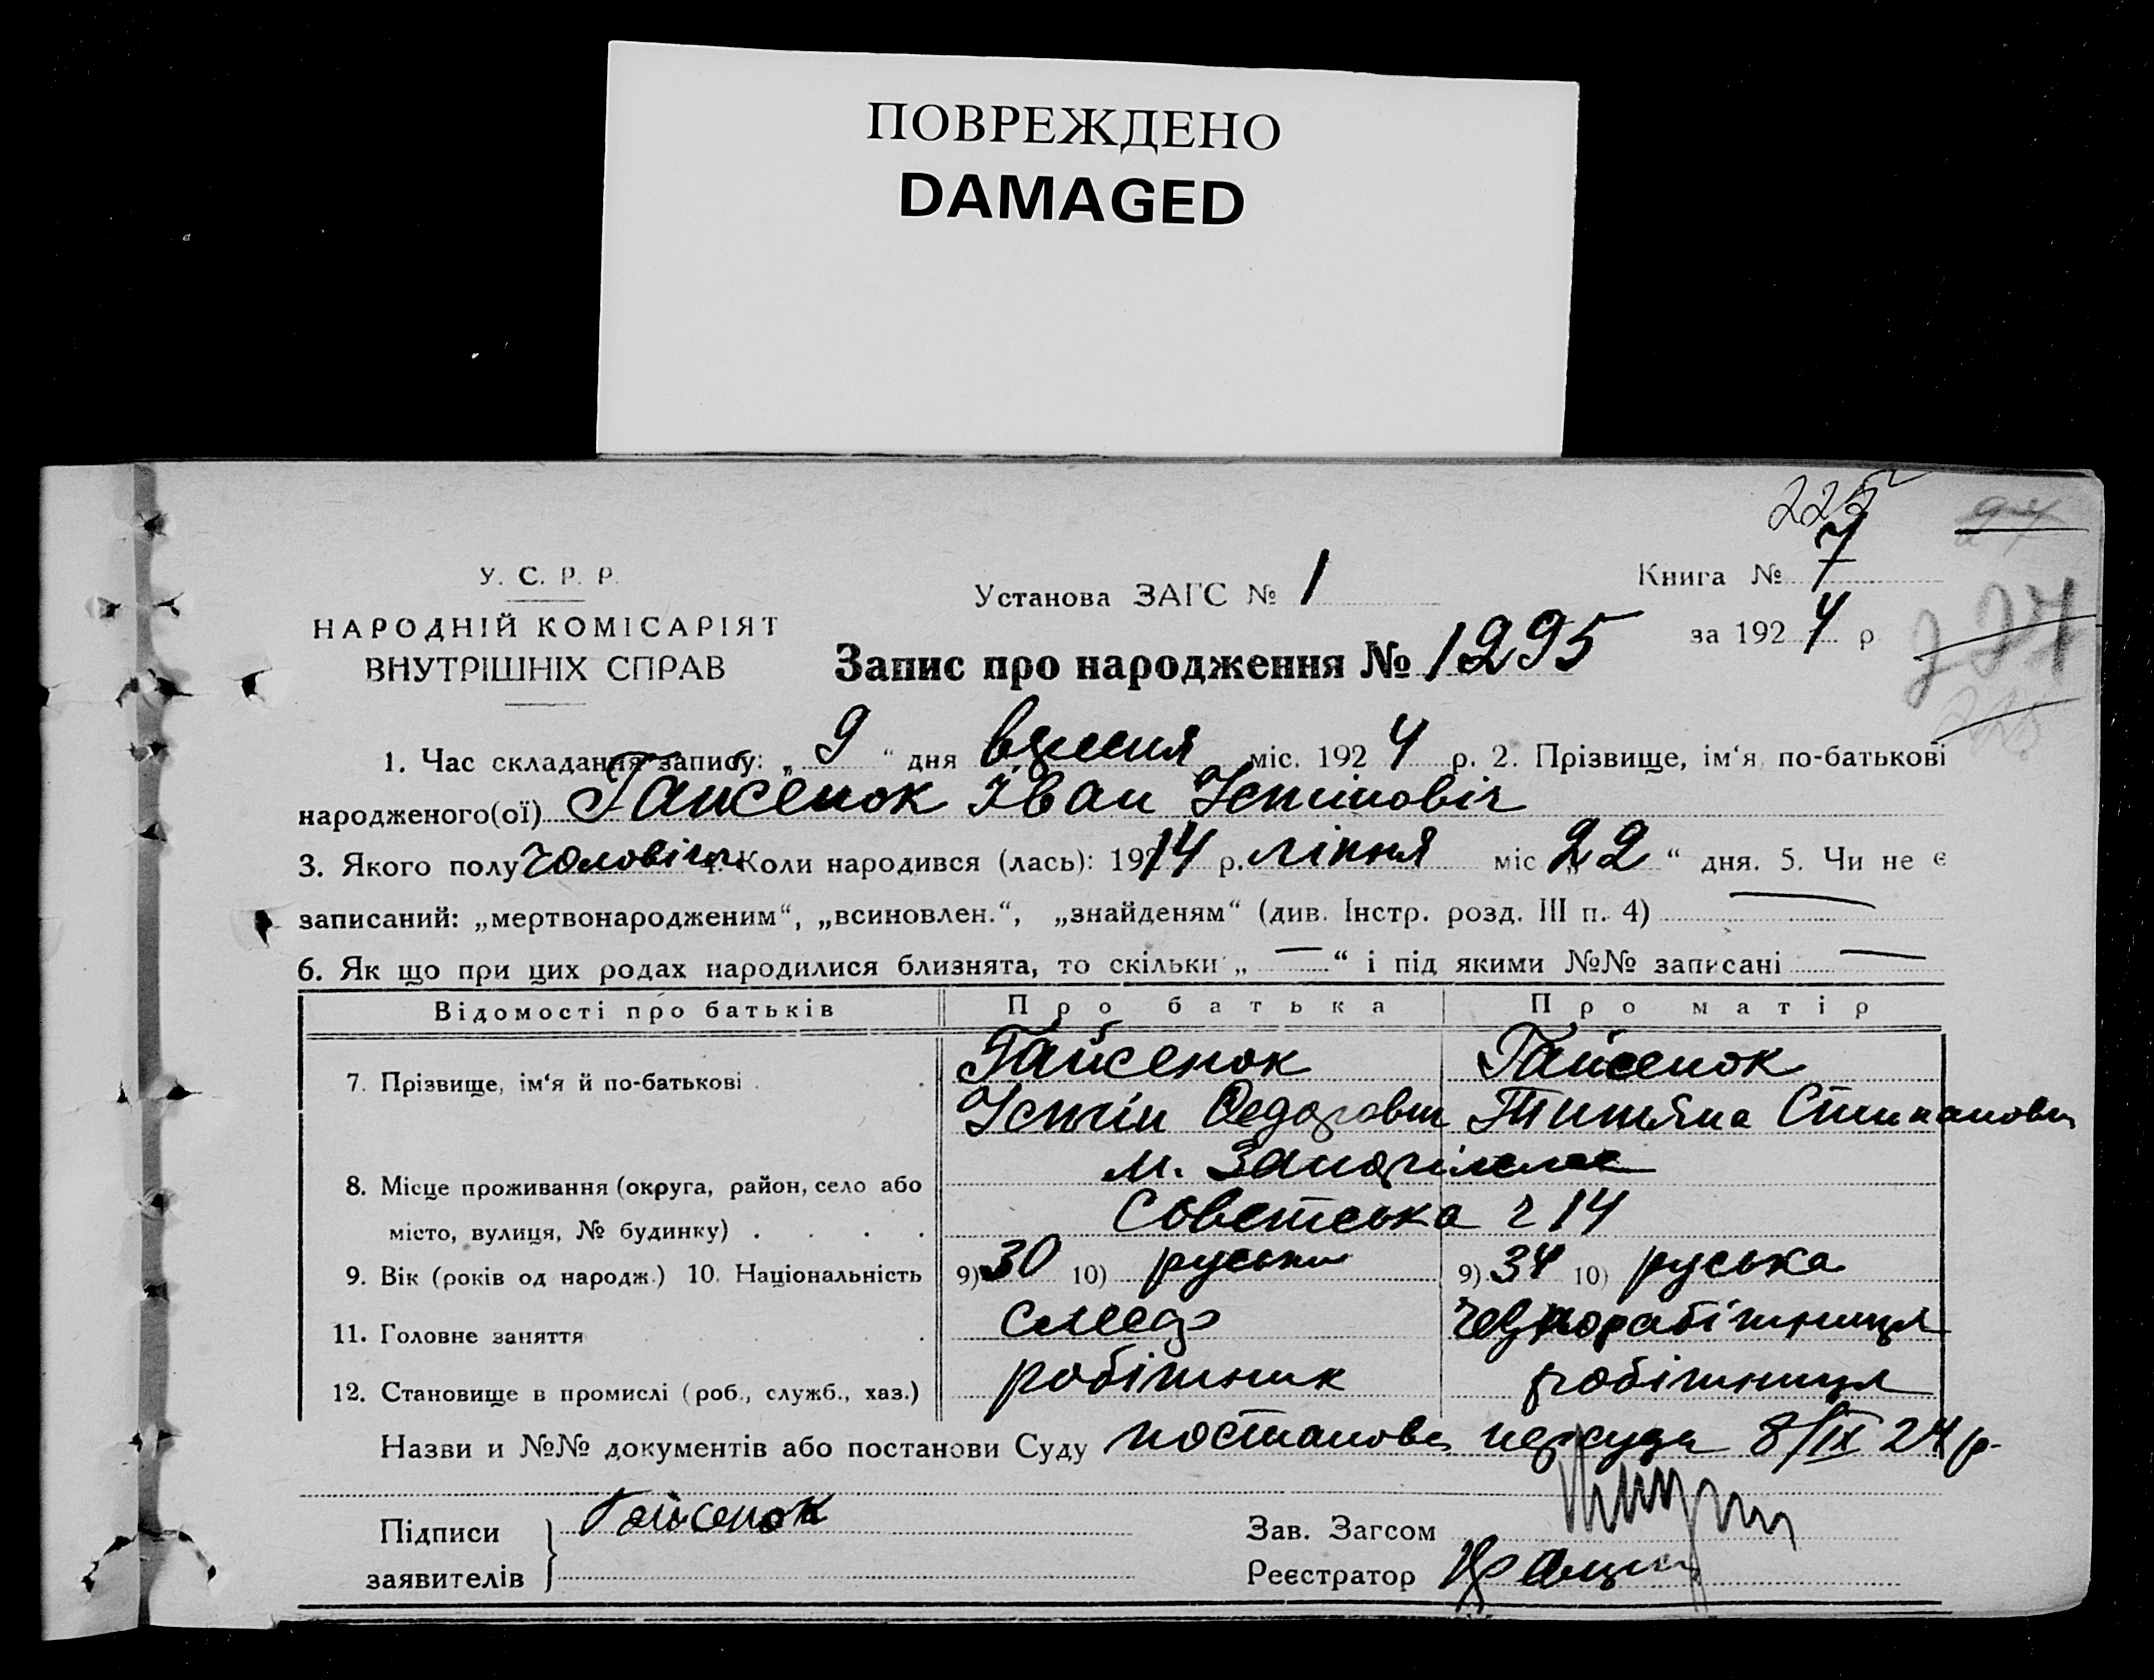 ПОВРЕЖДЕНО
DAMAGED
225
У. С. Р. Р.
НАРОДНІЙ КОМІСАРІЯТ
ВНУТРІШНІХ СПРАВ
Установа ЗАГС № 1
Книга № 7
за 1924 р
227
Запис про народження № 1295
1. Час складання запису: „ 9 “ дня вресня міс. 1924 р. 2. Прізвище, ім‘я, по-батькові
народженого(ої) Гайсенок Іван Устіновіч
3. Якого полу чоловіч. 4. Коли народився (лась): 1914 р. ліпня міс „ 22 “ дня. 5. Чи не є
записаний: „мертвонародженим“, „всиновлен.“, „знайденям“ (див. Інстр. розд. III п. 4) —
6. Як що при цих родах народилися близнята, то скільки „ — “ і під якими №№ записані —
Відомості про батьків Про батька Про матір
7. Прізвище, ім‘я й по-батькові . . Гайсенок Гайсенок
Устін Федорович Титяна Стипановн
8. Місце проживання (округа, район, село або м.
місто, вулиця, № будинку) . . . . Советська 14
9. Вік (років од народж.) 10. Національність 9) 30 10) руськи 9) 34 10) руська
11. Головне заняття . слесар чорнорабітниця
12. Становище в промислі (роб., служб., хаз.) робітник робітниця
Назви и №№ документів або постанови Суду постанова нарсуда 8/IX 24 р.
Підписи Гайсенок
заявителів
Зав. Загсом
Реєстратор